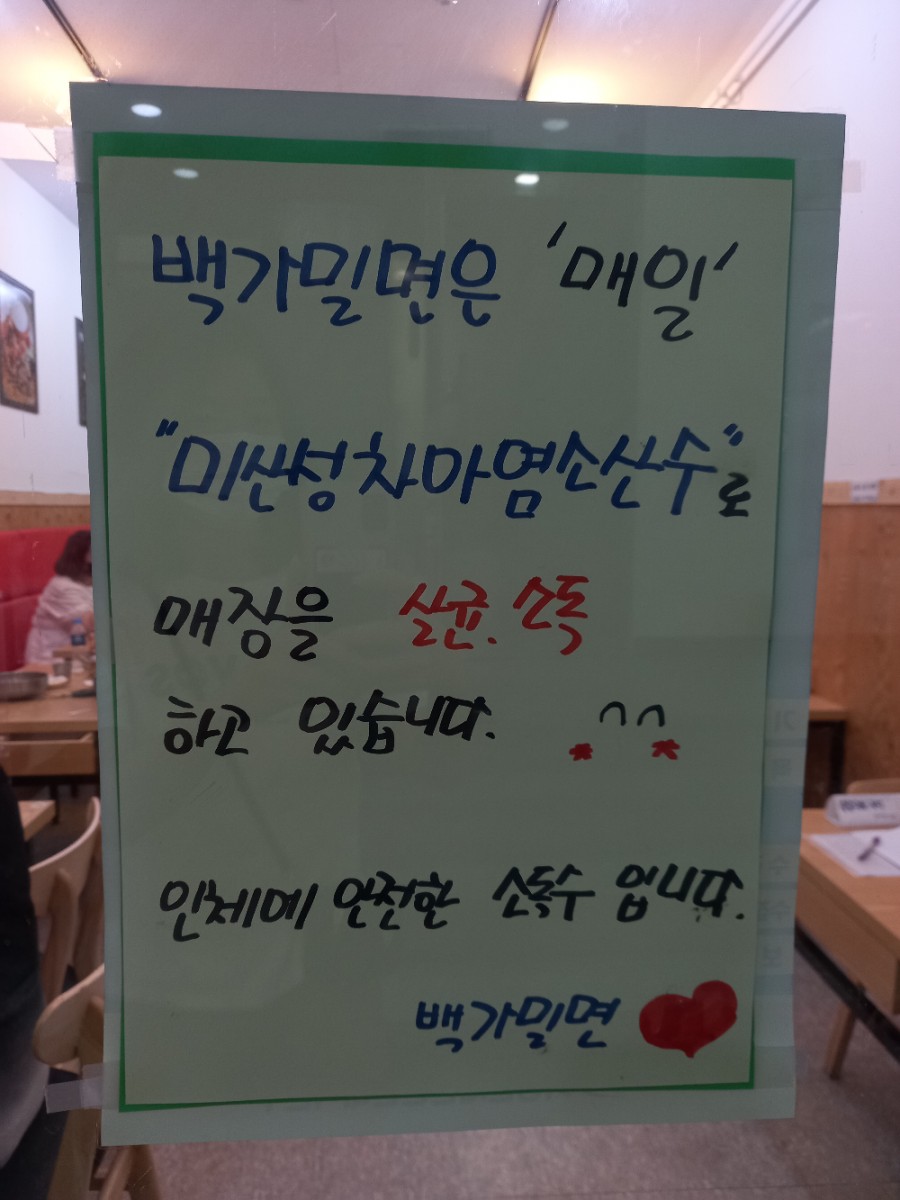 백가밀면은 '매일'
"미산성차아염소산수"로
매장을 살균.소독
하고 있습니다.
인체에 안전한 소독수 입니다.
백가밀면